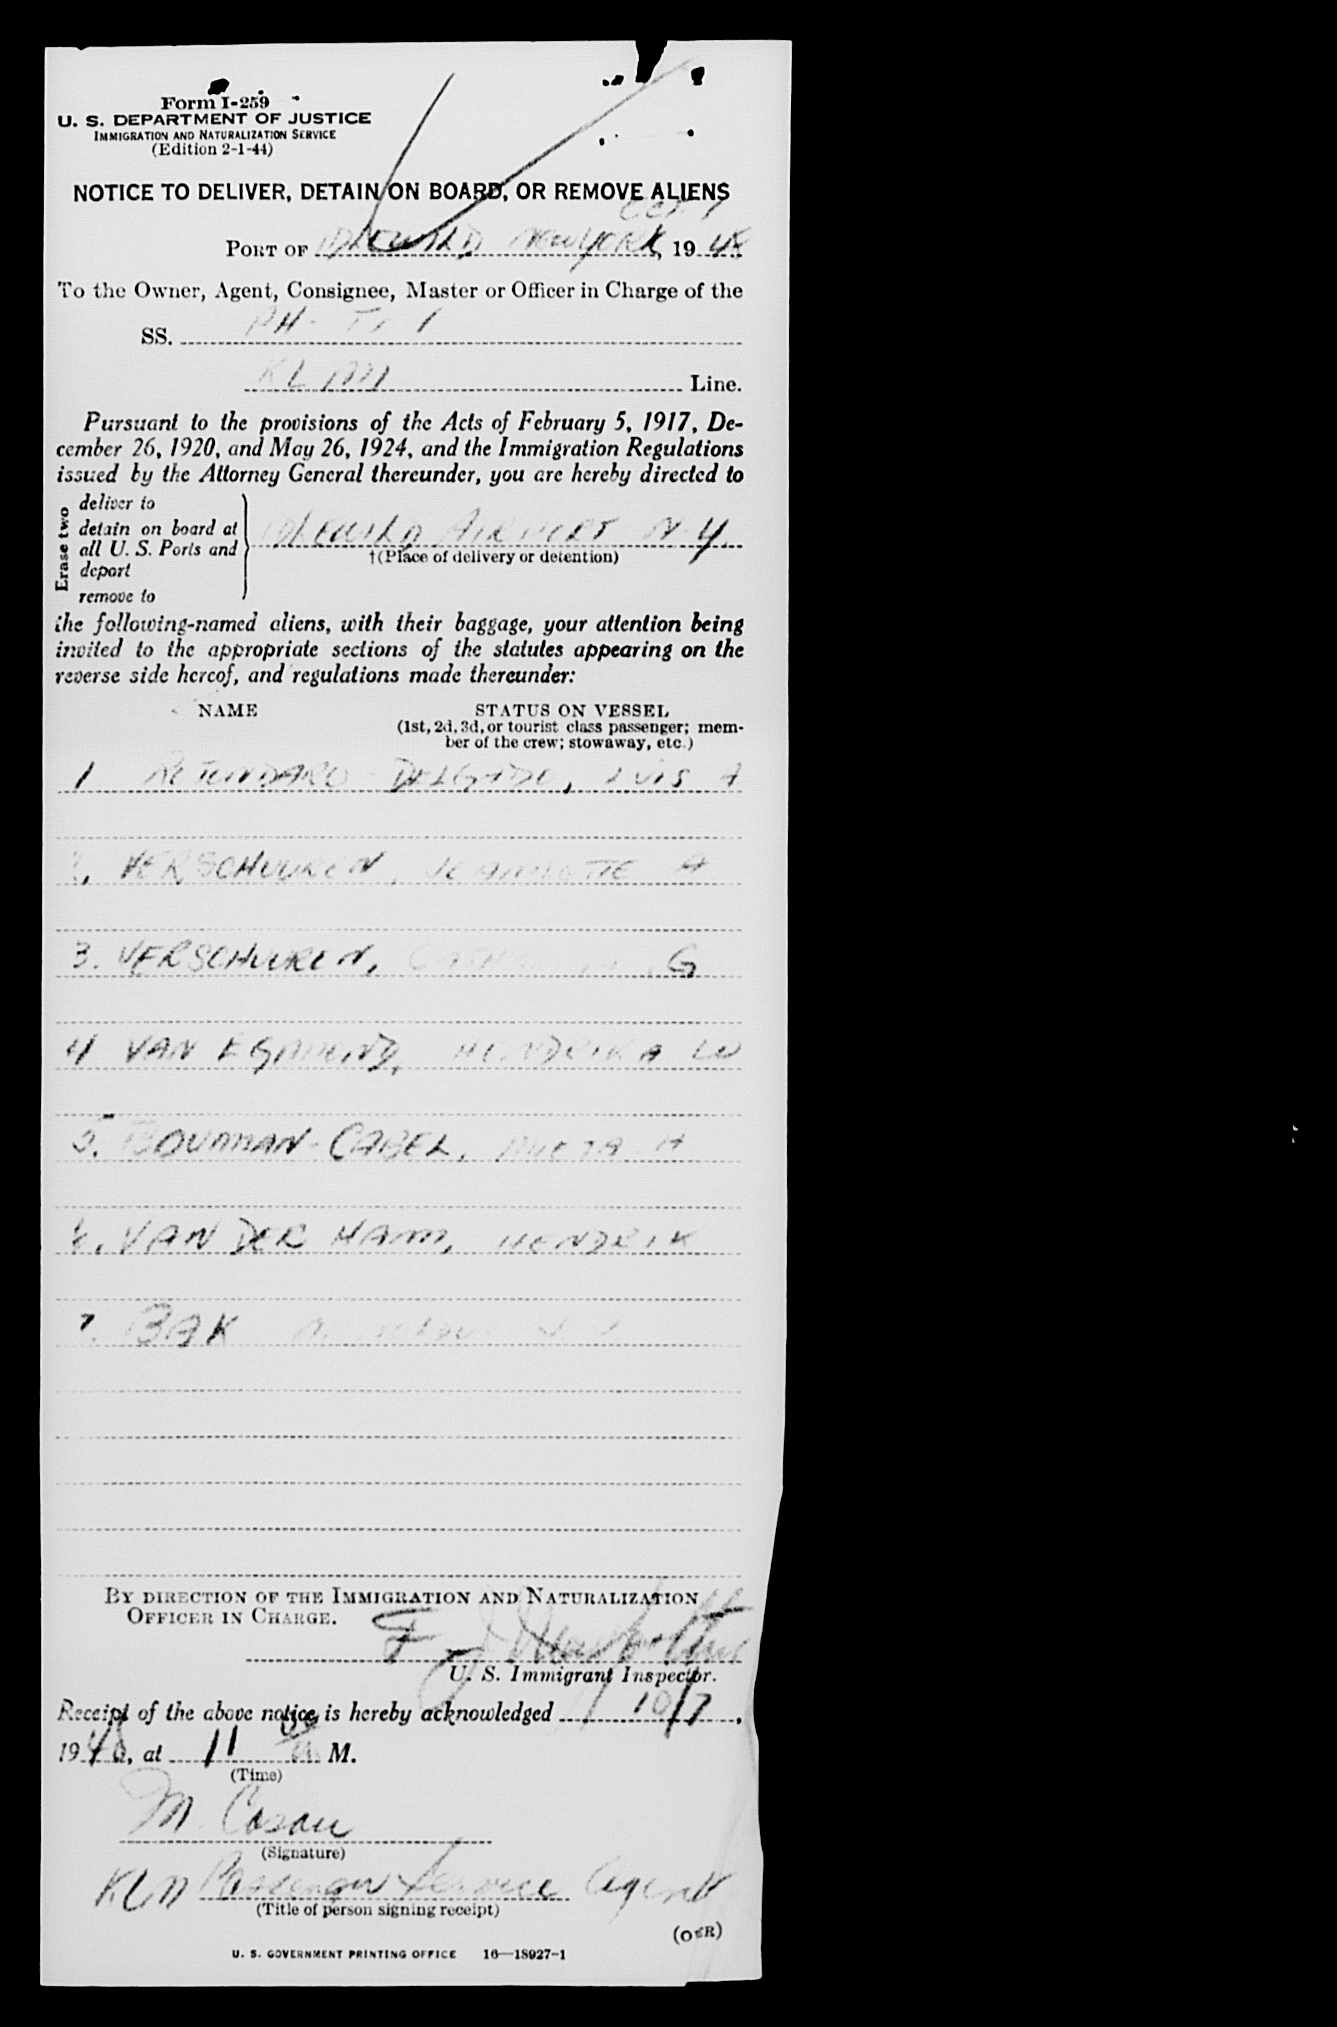 Form I-259
U. S. DEPARTMENT OF JUSTICE
IMMIGRATION AND NATURALIZATION SERVICE
(Edition 2-1-44)
NOTICE TO DELIVER, DETAIN ON BOARD, OR REMOVE ALIENS
OCT 7
PORT OF IDLEWILD NEW YORK, 19 48
To the Owner, Agent, Consignee, Master or Officer in Charge of the
SS. PH-
KLM Line.
Pursuant to the provisions of the Acts of February 5, 1917, De-
cember 26, 1920, and May 26, 1924, and the Immigration Regulations
issued by the Attorney General thereunder, you are hereby directed to
Erase two
deliver to
detain on board at
all U. S. Ports and
deport
remove to
IDLEWILD AIRPORT N.Y.
†(Place of delivery or detention)
the following-named aliens, with their baggage, your attention being
invited to the appropriate sections of the statutes appearing on the
reverse side hereof, and regulations made thereunder:
NAME STATUS ON VESSEL
(1st, 2d, 3d, or tourist class passenger; mem-
ber of the crew; stowaway, etc.)
1 DELGADO, LUIS A
2. VERSCHUUREN, JEANNETTE A
3. VERSCHUUREN, G
4 VAN EGMOND, HENDRIKA W
5. BOUMAN-CABEL, H
6. VAN DER HAM, HENDRIK
7. BAK
BY DIRECTION OF THE IMMIGRATION AND NATURALIZATION
OFFICER IN CHARGE.
F.
U. S. Immigrant Inspector.
Receipt of the above notice is hereby acknowledged 10/7,
1948, at 11 M.
(Time)
M.
(Signature)
KLM Passenger Service Agent
(Title of person signing receipt)
(OVER)
U. S. GOVERNMENT PRINTING OFFICE 16—18927-1